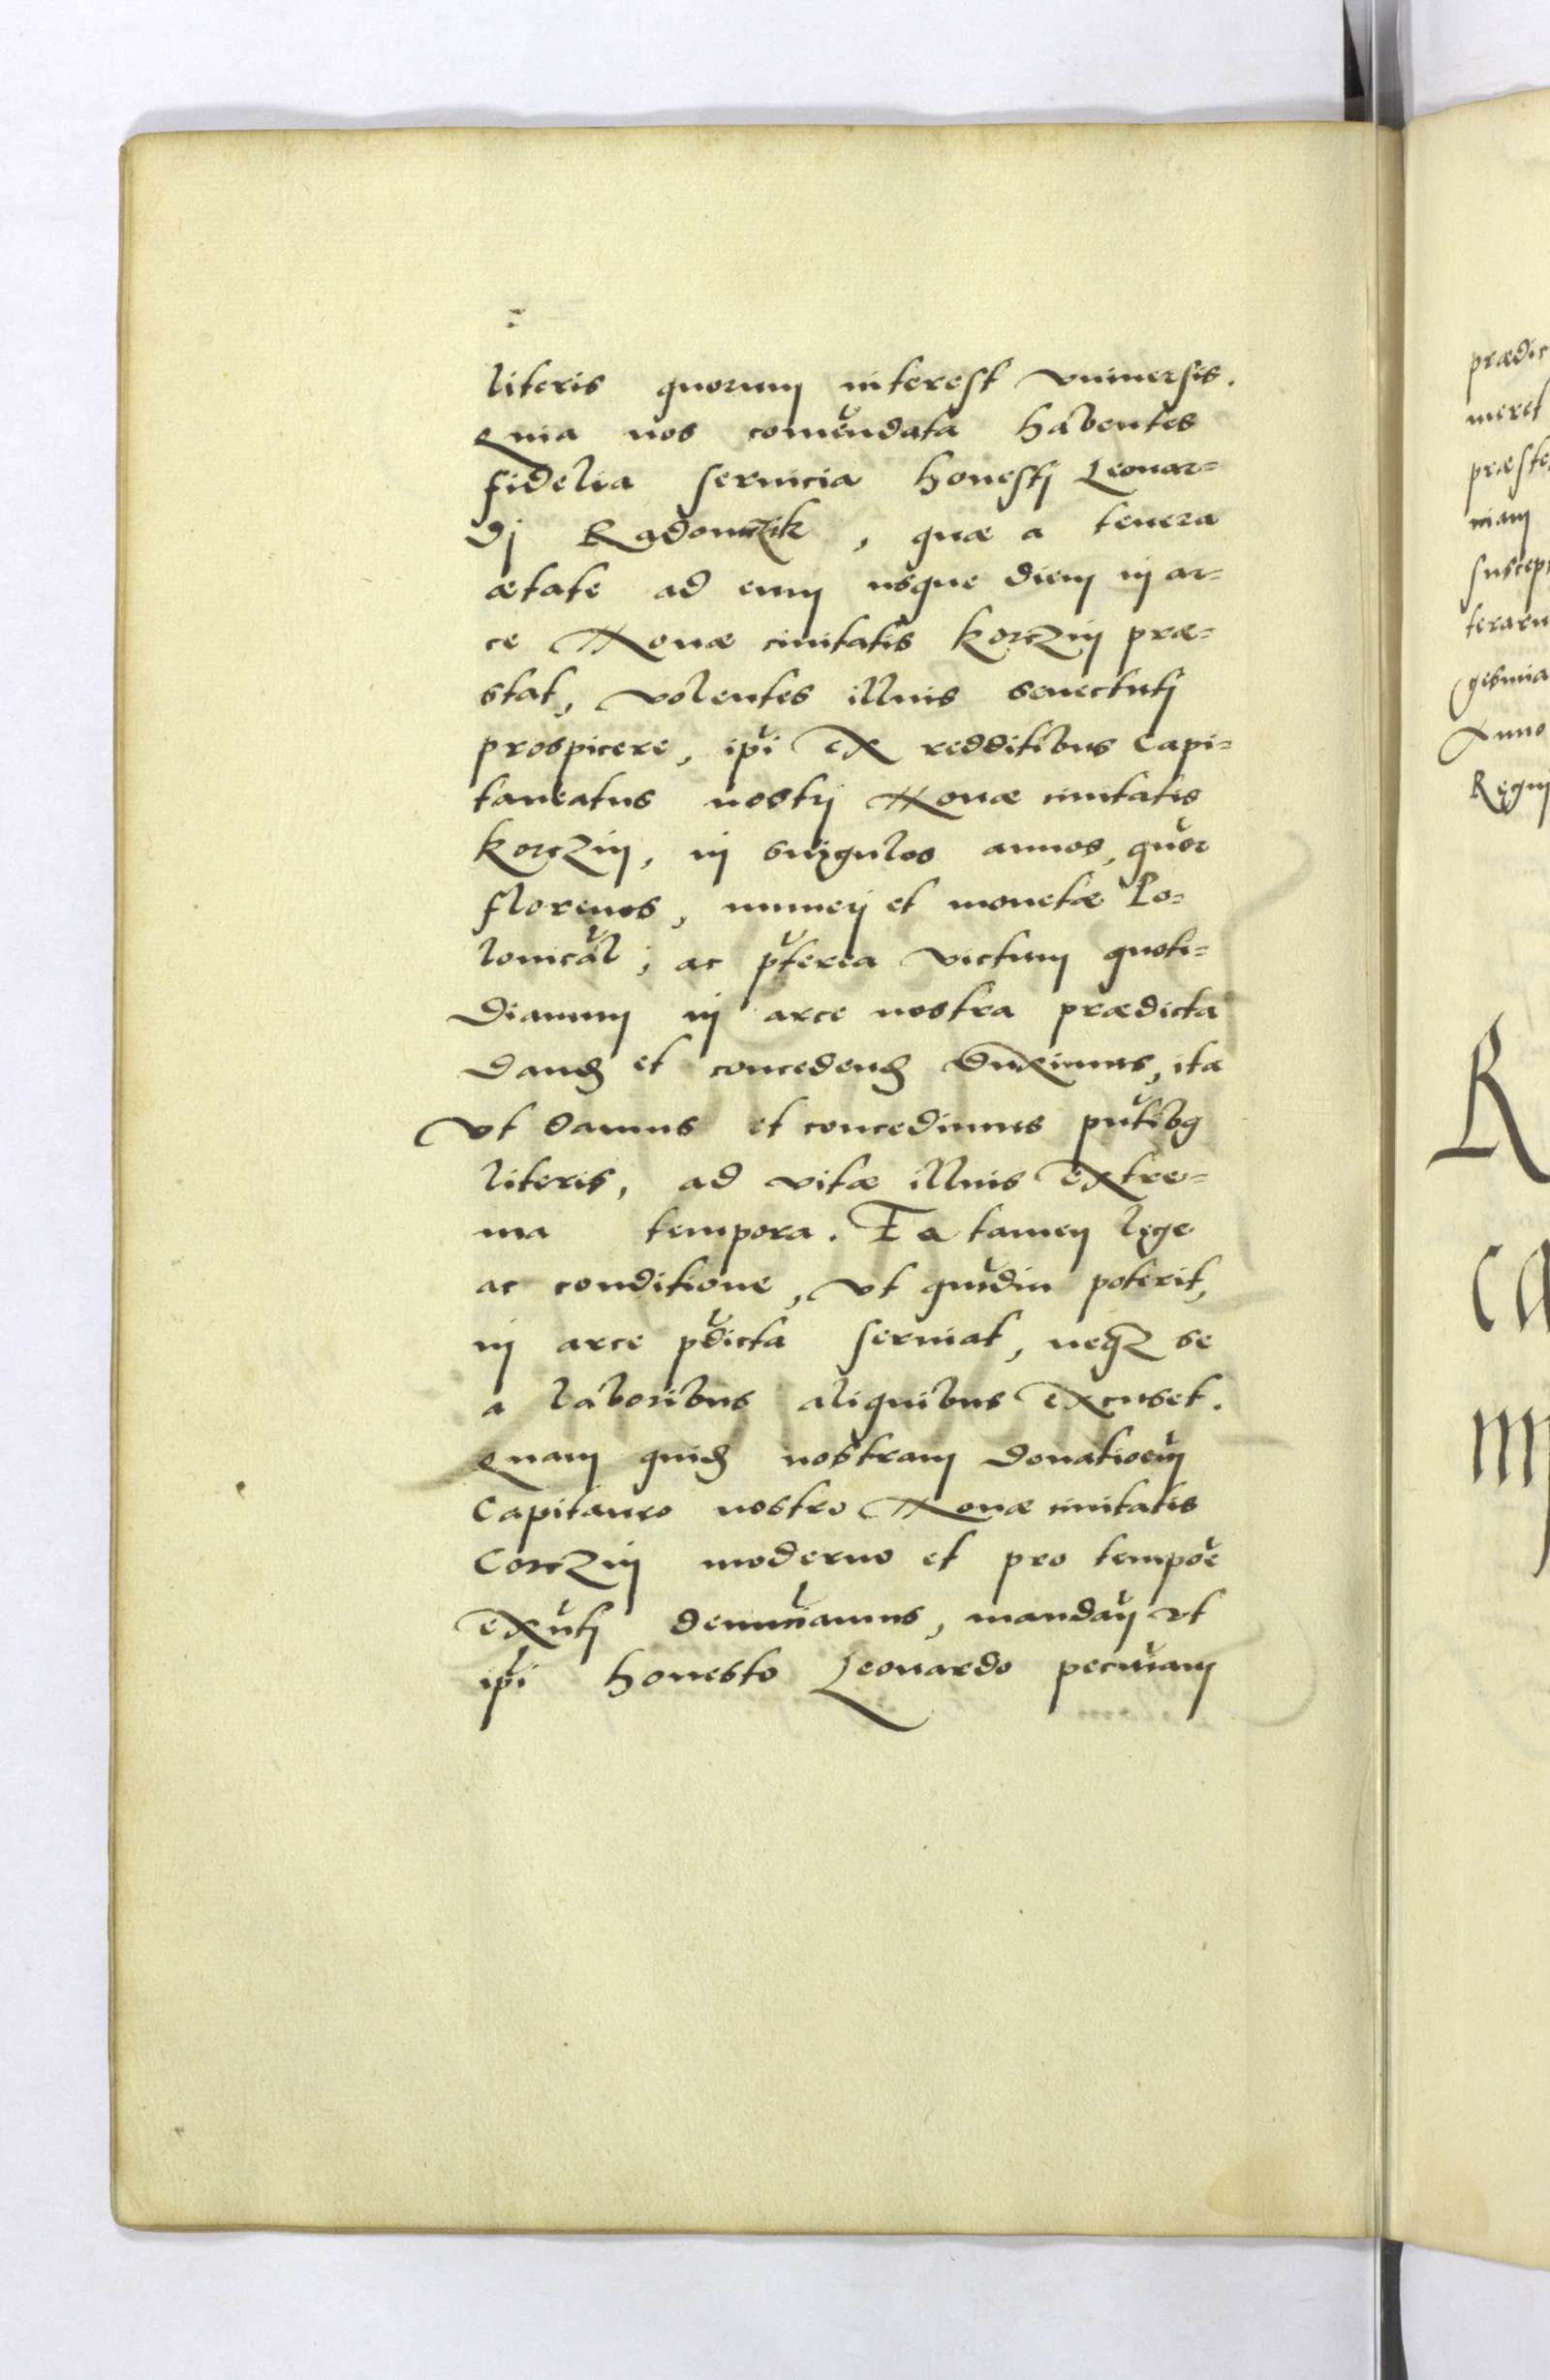 literis quorum interest vniuersis.
Quia nos comendata habentes
fidelia seruicia honesti Leonar=
di Radomczik, quæ a tenera
ætate ad eum usque diem in ar=
ce Nouæ ciuitatis Korczin præ=
stat, volentes illius senectuti
prospicere, ipi ex redditibus Capi=
taneatus nostri Nouæ ciuitatis
Korczin, in singulos annos, quor
florenos, numeri et monetæ Po=
lonical, ac pterea victum quoti=
dianum in arce nostra prædicta
dand et concedend duximus, ita
vt damus et concedimus pntibq
literis, ad vitæ illius extre=
ma tempora. Ea tamen lege
ac conditione, vt qudiu poterit,
in arce pdicta seruiat, neqz se
a laboribus aliquibus excuset.
Quam quid nostram donatioem
Capitaneo nostro Nouæ ciuitatis
Corczin moderno et pro tempoe
exnti denunciamus, mandan vt
ipi honesto Leonardo pecuniam
prædic
meret
præste
niam
suscep
teraru
gesima
Anno
Regni
R
ca